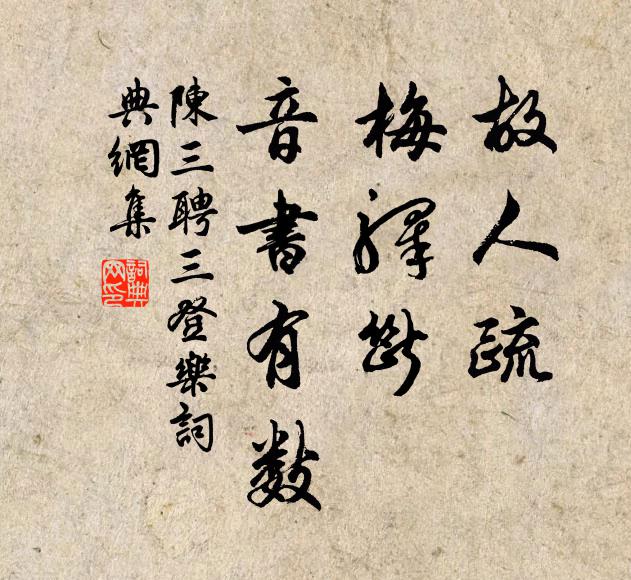 故人疏
梅驛斷
音書有數
陳三聘三登樂詞
典網集
詞典網印